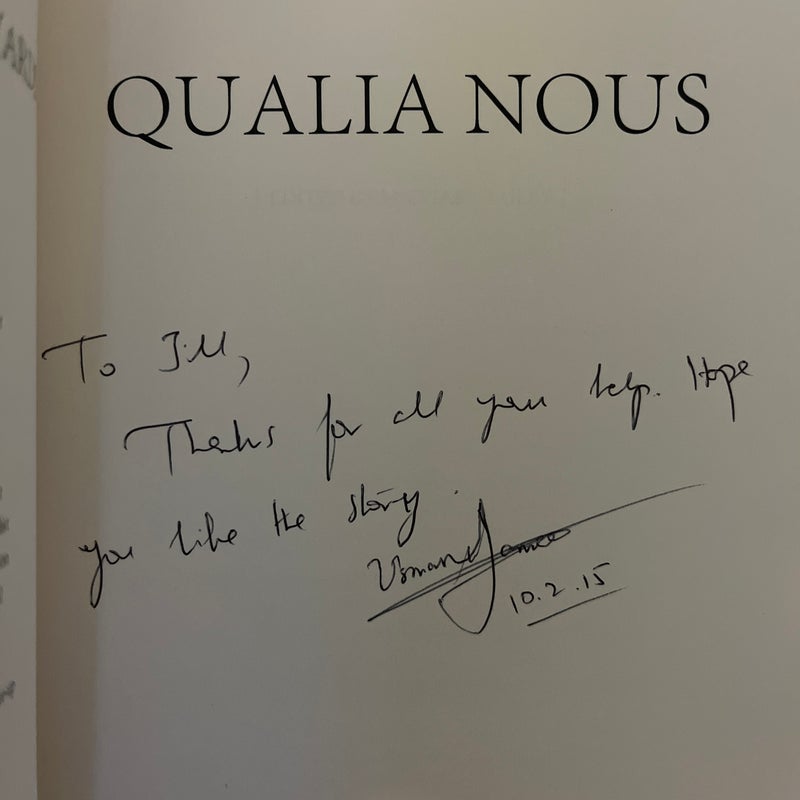 QUALIA NOUS
To Jill,
Thanks for all your help. Hope
you like the story.
Usman
10.2.15